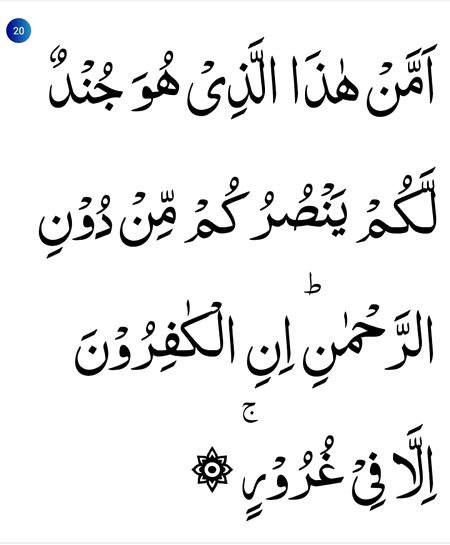 20
اَمَّنْ هٰذَا الَّذِیْ هُوَ جُنْدٌ
لَّكُمْ یَنْصُرُكُمْ مِّنْ دُوْنِ
الرَّحْمٰنِ ؕ اِنِ الْكٰفِرُوْنَ
اِلَّا فِیْ غُرُوْرٍ ۚ ۞